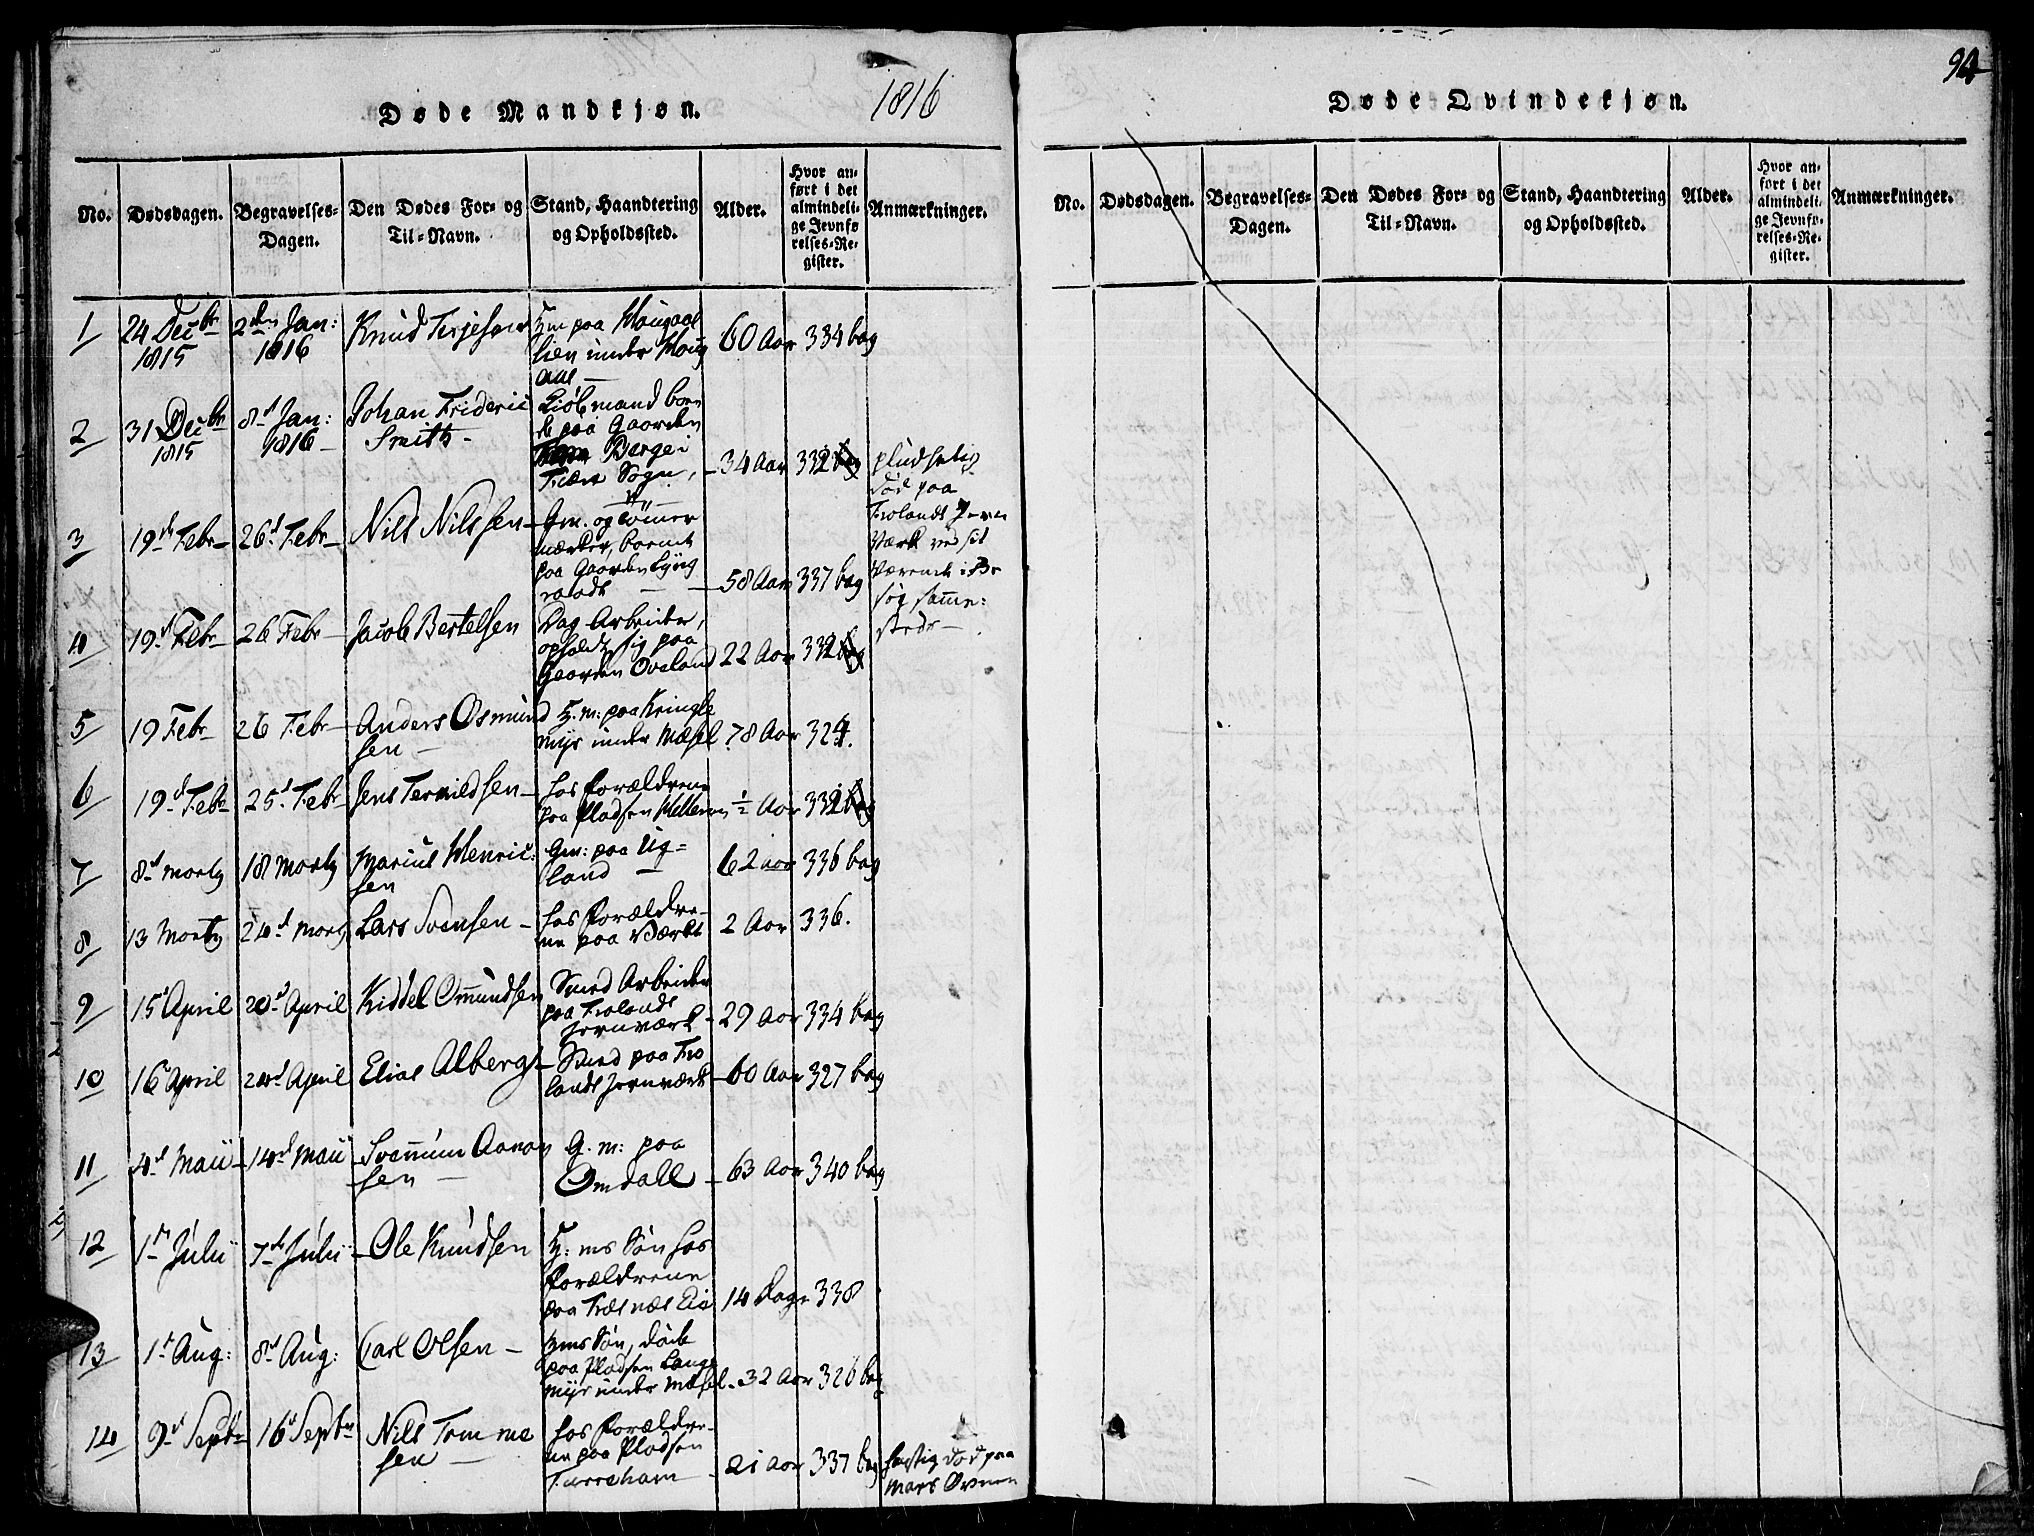 1816
Døde Mandkjøn.
No.
Dødsdagen.
Begravelses-
Dagen.
Den Dødes For- og
Til-Navn.
Stand, Haandtering
og Opholdssted.
Alder.
Hvor an-
ført i det
almindeli-
ge Jevnfø
relses-Re-
gister.
Anmærkninger.
1
24 Decbr
1815
2den Jan:
1816
Knud Terjesen
Hm paa Hougaal
lien under Houg
aas
60 Aar
334 bag
2
31 Decbr
1815
8d Jan:
1816
Johan Frideric
Smith
Kiøbmand boen
de paa Gaarden
Berge i
Fiære Sogn,
34 Aar
332
pludselig
død paa
Frolands Jern
Værk ved sit
Værende i Be
søg samme-
steds
3
19d Febr
26d Febr
Nils Nilssen
Gm. og Tømmer
mærker, boende
paa Gaarden Lyng
roladt
58 Aar
337 bag
4
19d Febr
26 Febr
Jacob Bertelsen
Dag Arbeider,
opholdt sig paa
Gaarden Oveland
22 Aar
332
5
19 Febr
26 Febr
Anders Osmund
sen
H.m: paa Kringle
myr under Mæsel
78 Aar
324.
6
19d Febr
25d Febr
Jens Terkildsen
hos Forældrene
paa Pladsen Helleren
½ Aar
332
7
8d Martz
18 Martz
Marius Henric:
sen
Gm: paa Ug=
land
62 Aar
336 bag
8
13 Martz
24d Martz
Lars Svensen
hos Forældre-
ne paa Værket
2 Aar
336.
9
15d April
20d April
Kiddel Omundsen
Smed Arbeider
paa Frolands
Jernværk
29 Aar
334 bag
10
16d April
24d April
Elias Alberg
Smed paa Fro
lands Jernværk
60 Aar
327 bag
11
4d Maii
14d Maii
Svennum Aanon
sen
G. m: paa
Omdall
63 Aar
340 bag
12
1d Julii
7de Julii
Ole Knudsen
H: ms Søn hos
Forældrene
paa Træsnæs Eie
14 Dage
338
13
1d Aug:
8d Aug:
Carl Olsen
Hms Søn, døde
paa Pladsen Lange
myr under Mæsel
32 Aar
326 bag
14
9d Septbr
16d Septbr
Nils Tomme
sen
hos Forældre-
ne paa Pladsen
Furreham
21 Aar
337 bag
hastig død paa
Mars Ovnen
94
Døde Qvindekjøn.
No.
Dødsdagen.
Begravelses-
Dagen.
Den Dødes For- og
Til-Navn.
Stand, Haandtering
og Opholdssted.
Alder.
Hvor an-
ført i det
almindeli-
ge Jevnfø-
relses-Re-
gister.
Anmærkninger.